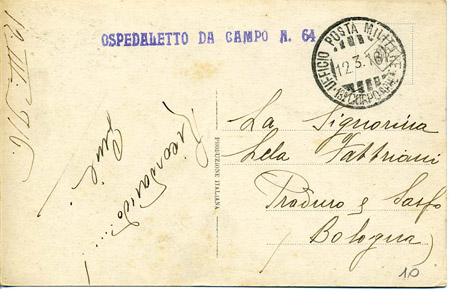 OSPEDALETTO DA CAMPO N. 64
UFFICIO POSTA MILITARE
12.3.16
12 III 916
Ricordando.....!
PRODUZIONE ITALIANA
La Signorina
Lela Fabbriani
Produro e Sasso
(Bologna)
10